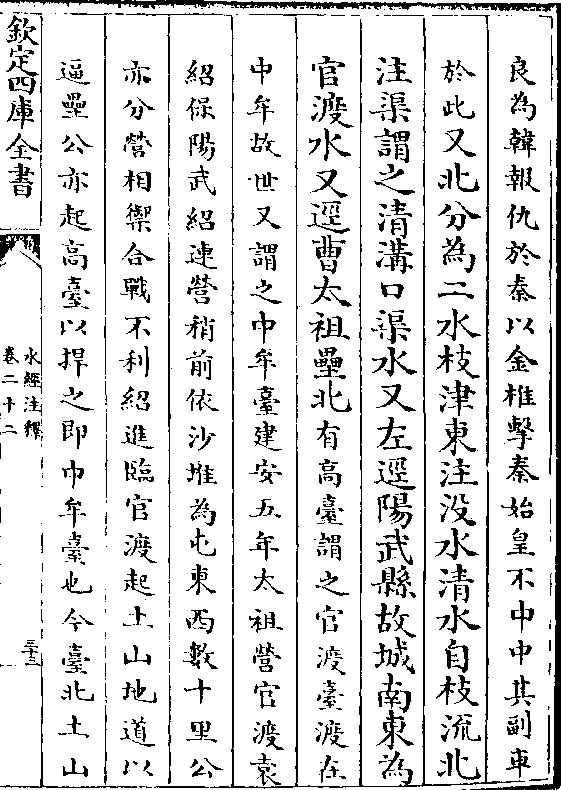 良為韓報仇於秦以金椎擊秦始皇不中中其副車
於此又北分為二水枝津東注没水清水自枝流北
注渠謂之清溝口渠水又左逕陽武縣故城南東為
官渡水又逕曹太祖壘北有高臺謂之官渡臺渡在
中牟故世又謂之中牟臺建安五年太祖營官渡袁
紹保陽武紹連營稍前依沙堆為屯東西數十里公
亦分營相禦合戰不利紹進臨官渡起土山地道以
逼壘公亦起高臺以捍之即中牟臺也今臺北土山
欽定四庫全書
水經注釋
卷二十二
三十三